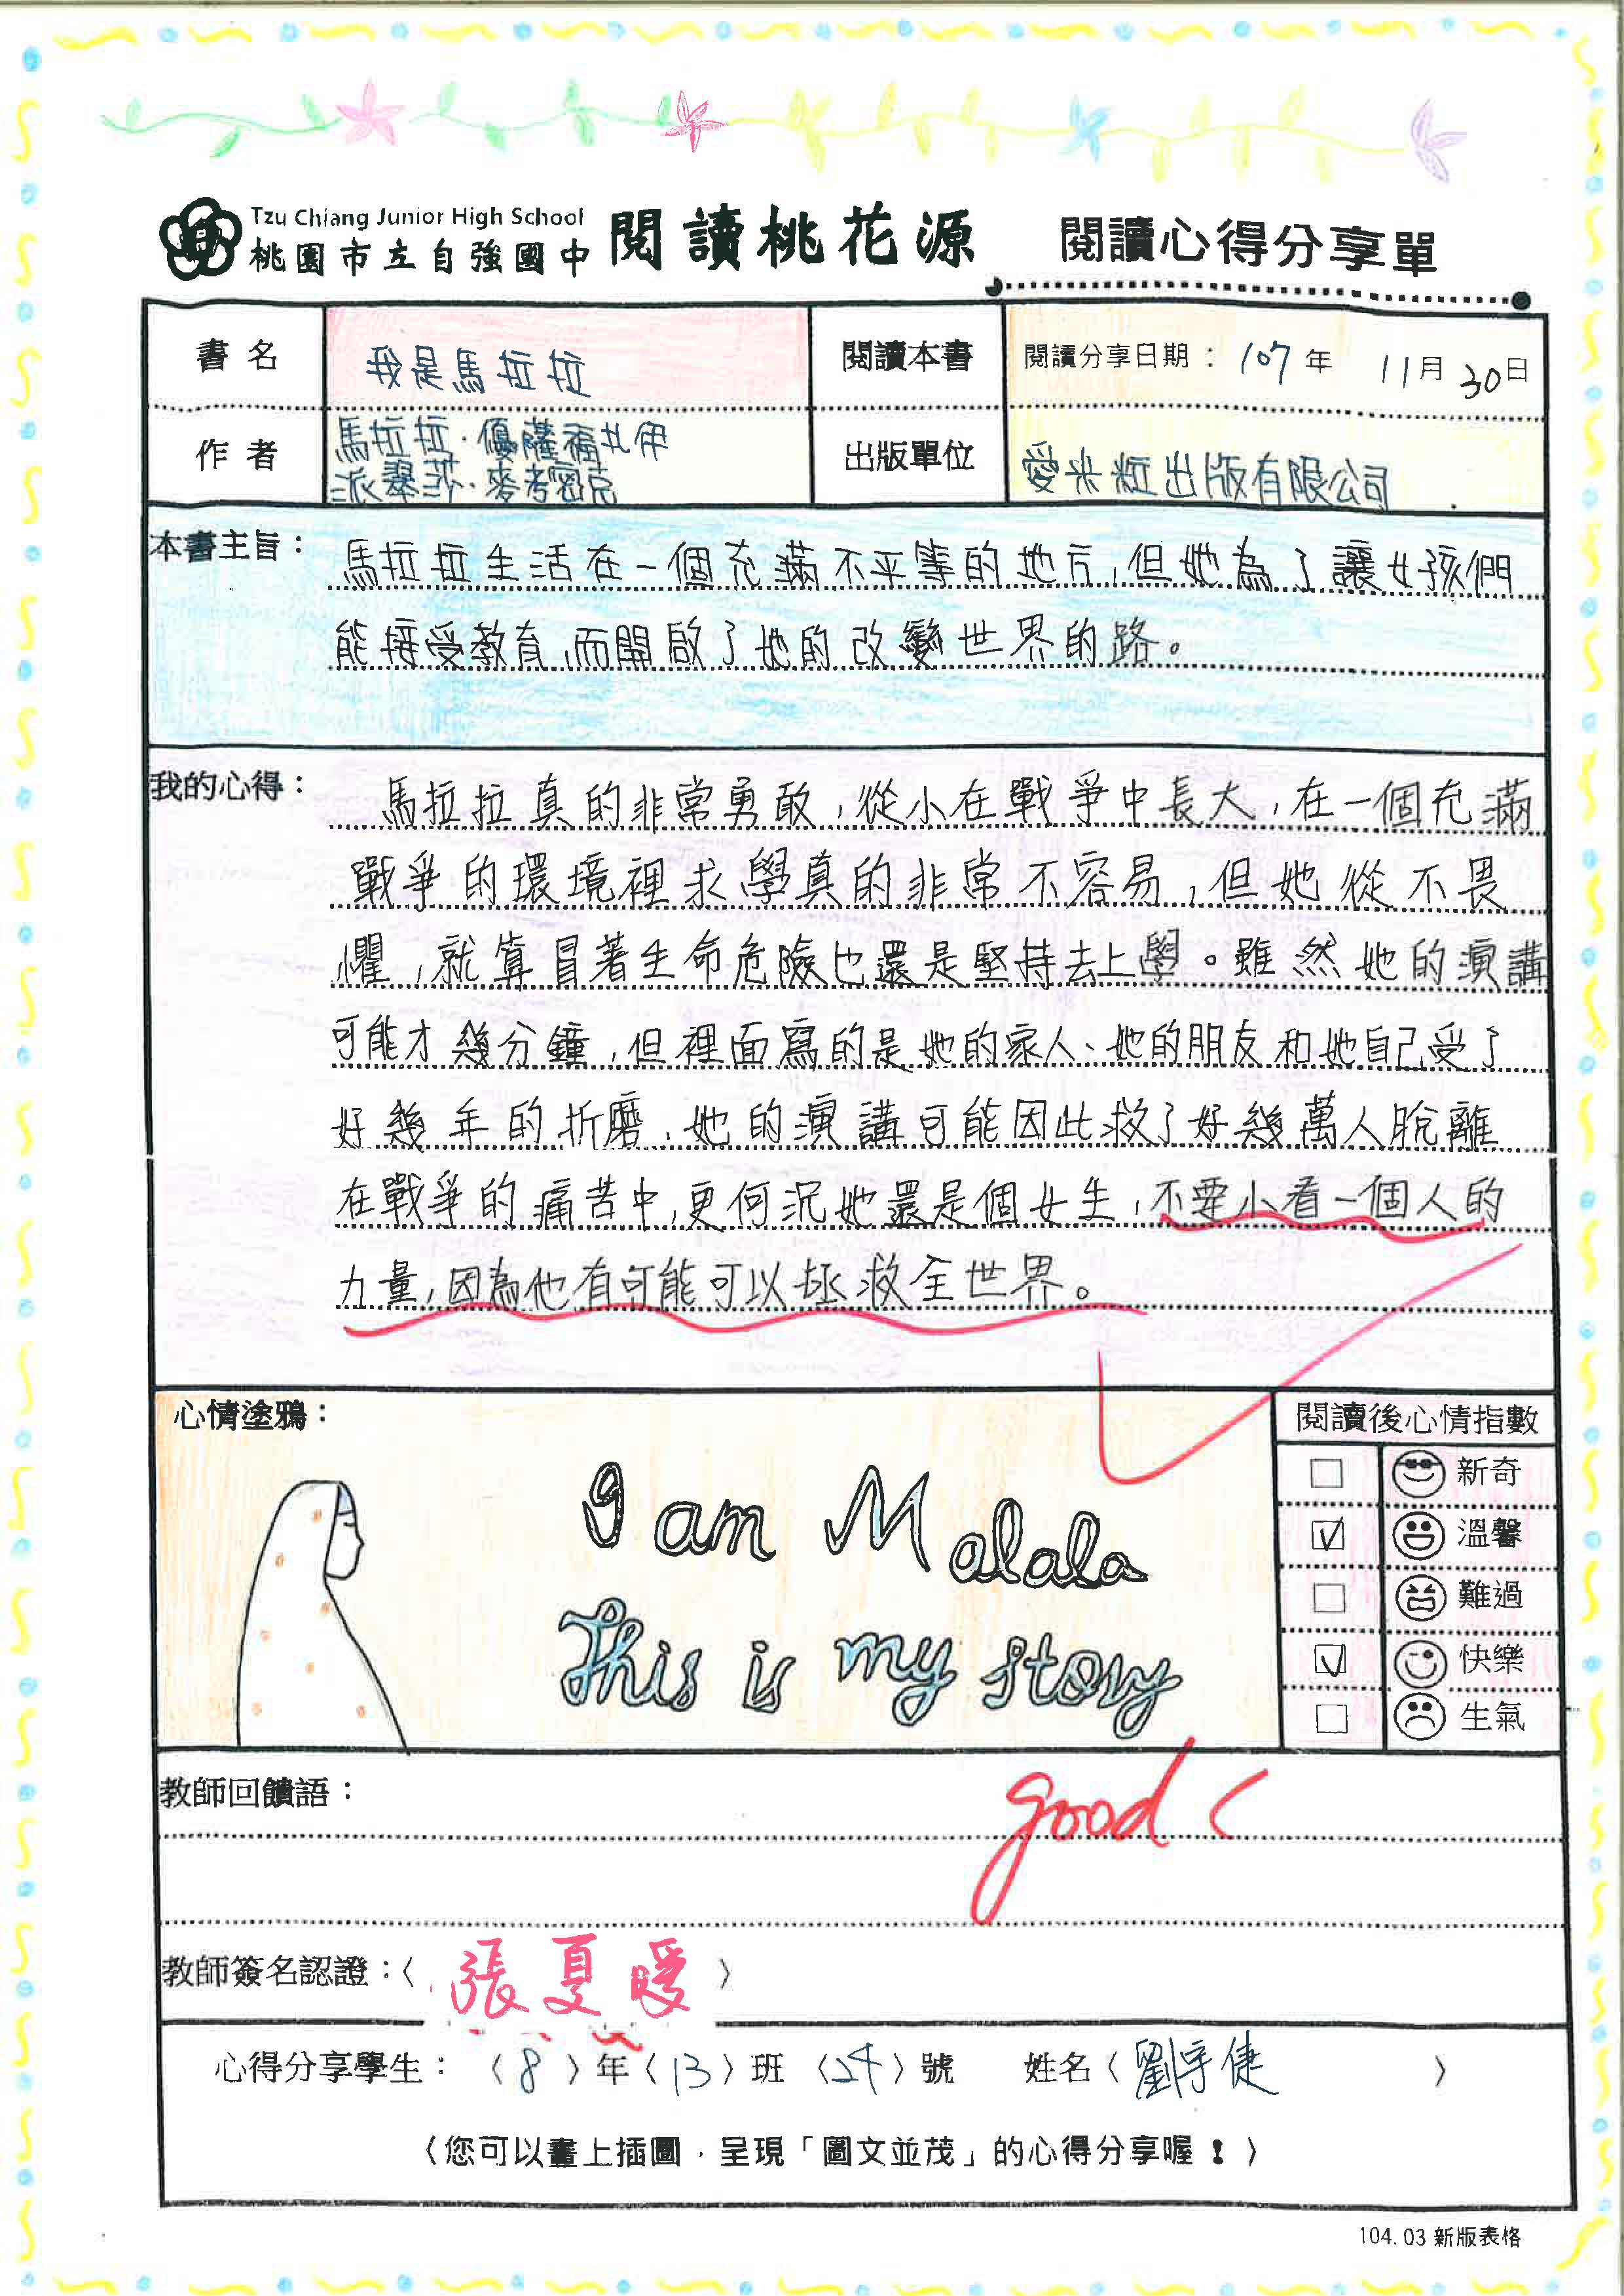 Tzu Chiang Junior High School
桃園市立自強國中 閱讀桃花源 閱讀心得分享單
書名 我是馬拉拉 閱讀本書 閱讀分享日期：107年 11月30日
作者 馬拉拉·優薩福扎伊
派翠莎·麥考密克 出版單位 愛米粒出版有限公司
本書主旨：馬拉拉生活在一個充滿不平等的地方，但她為了讓女孩們
能接受教育，而開啟了她的改變世界的路。
我的心得：馬拉拉真的非常勇敢，從小在戰爭中長大，在一個充滿
戰爭的環境裡求學真的非常不容易，但她從不畏
懼，就算冒著生命危險也還是堅持去上學。雖然她的演講
可能才幾分鐘，但裡面寫的是她的家人、她的朋友和她自己受了
好幾年的折磨，她的演講可能因此救了好幾萬人脫離
在戰爭的痛苦中，更何況她還是個女生，不要小看一個人的
力量，因為他有可能可以拯救全世界。
心情塗鴉：
I am Malala
This is my story
閱讀後心情指數
新奇
溫馨
難過
快樂
生氣
教師回饋語：
good
教師簽名認證：〈張夏媛〉
心得分享學生：〈8〉年〈13〉班〈24〉號 姓名〈劉宇倢〉
〈您可以畫上插圖，呈現「圖文並茂」的心得分享喔！〉
104.03 新版表格